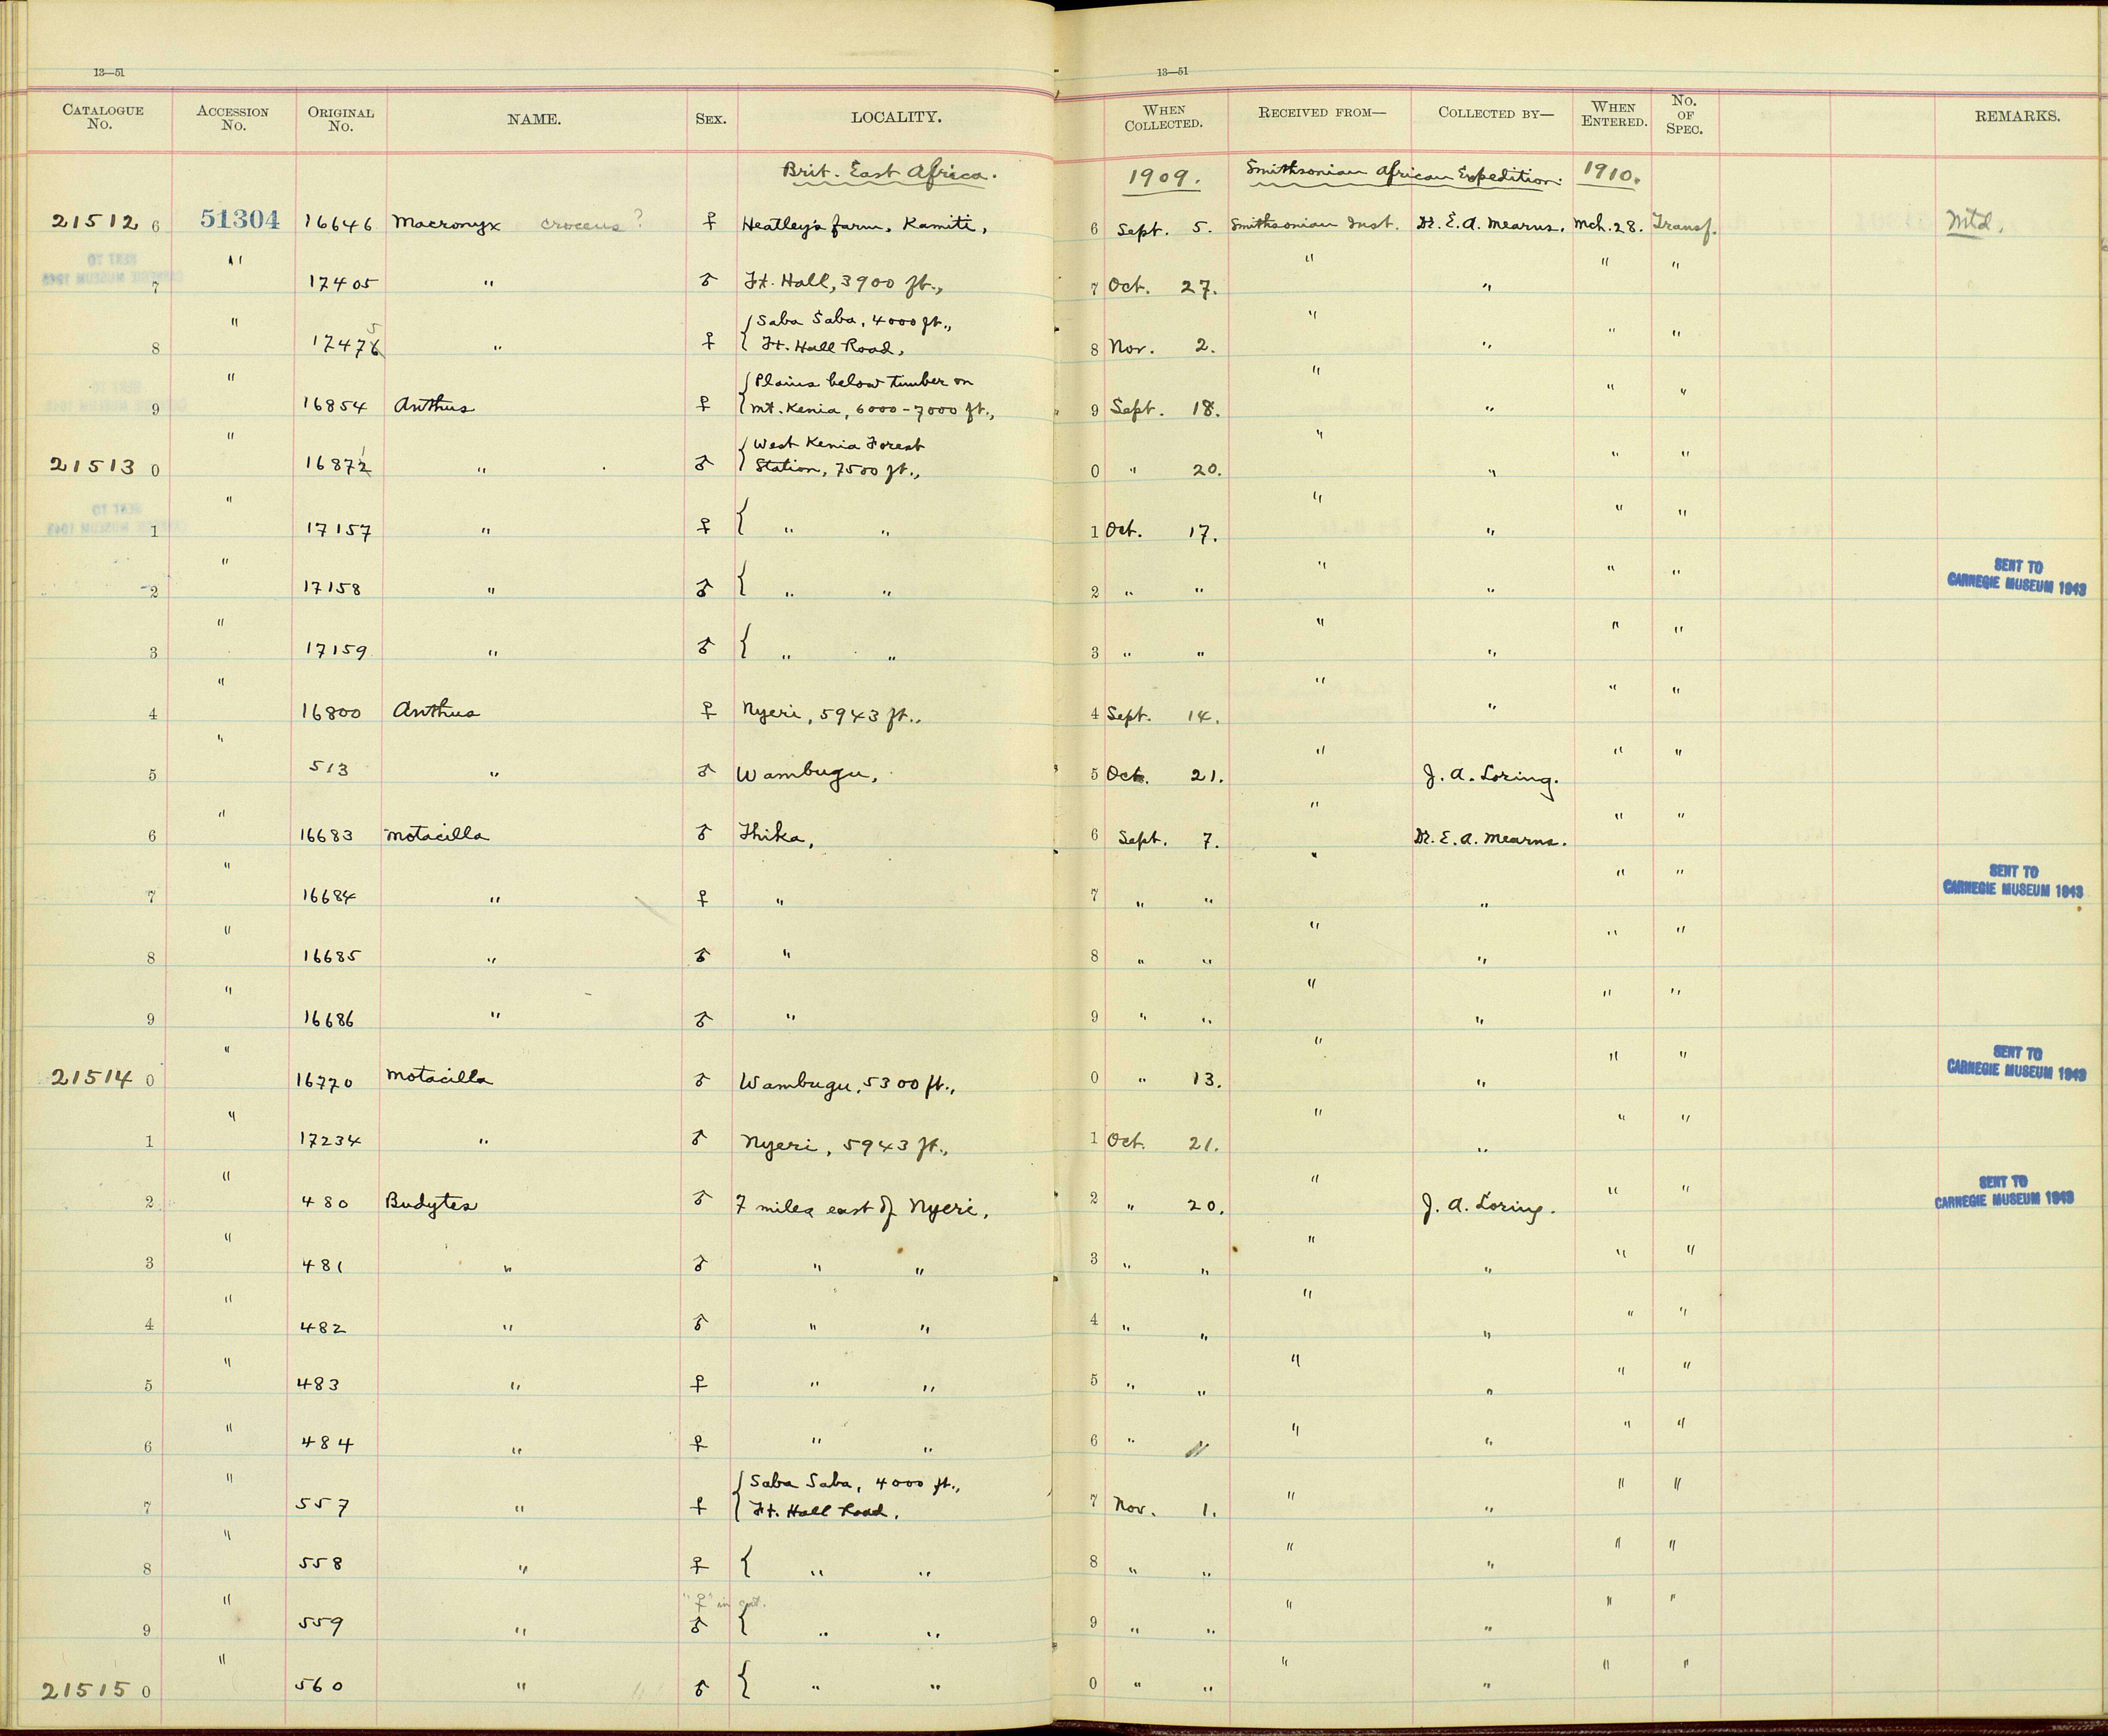 13—51 13—51
CATALOGUE No. ACCESSION No. ORIGINAL No. NAME. SEX. LOCALITY. WHEN COLLECTED. RECEIVED FROM— COLLECTED BY— WHEN ENTERED. No. OF SPEC. REMARKS.
Brit. East Africa. 1909. Smithsonian African Expedition. 1910.
21512 6 51304 16646 Macronyx croceus? ♀ Heatley's farm, Kamiti, 6 Sept. 5. Smithsonian Inst. Dr. E. A. Mearns. Mch. 28. Transf. Mtd.
7 " 17405 " ♂ Ft. Hall, 3900 ft., 7 Oct. 27. " " " "
Saba Saba, 4000 ft.,
8 " 17476 5 " ♀ Ft. Hall Road, 8 Nov. 2. " " " "
Plains below timber on
9 " 16854 Anthus ♀ Mt. Kenia, 6000-7000 ft., 9 Sept. 18. " " " "
West Kenia Forest
21513 0 " 16872 1 " ♂ Station, 7500 ft., 0 " 20. " " " "
1 " 17157 " ♀ " " 1 Oct. 17. " " " "
2 " 17158 " ♂ " " 2 " " " " " " SENT TO CARNEGIE MUSEUM 1943
3 " 17159 " ♂ " " 3 " " " " " "
4 " 16800 Anthus ♀ Nyeri, 5943 ft., 4 Sept. 14. " " " "
5 " 513 " ♂ Wambugu, 5 Oct. 21. " J. A. Loring. " "
6 " 16683 Motacilla ♂ Thika, 6 Sept. 7. " Dr. E. A. Mearns. " "
7 " 16684 " ♀ " 7 " " " " " " SENT TO CARNEGIE MUSEUM 1943
8 " 16685 " ♂ " 8 " " " " " "
9 " 16686 " ♂ " 9 " " " " " "
21514 0 " 16770 Motacilla ♂ Wambugu, 5300 ft., 0 " 13. " " " " SENT TO CARNEGIE MUSEUM 1943
1 " 17234 " ♂ Nyeri, 5943 ft., 1 Oct. 21. " " " "
2 " 480 Budytes ♂ 7 miles east of Nyeri, 2 " 20. " J. A. Loring. " " SENT TO CARNEGIE MUSEUM 1943
3 " 481 " ♂ " " 3 " " " " " "
4 " 482 " ♂ " " 4 " " " " " "
5 " 483 " ♀ " " 5 " " " " " "
6 " 484 " ♀ " " 6 " " " " " "
Saba Saba, 4000 ft.,
7 " 557 " ♀ Ft. Hall Road, 7 Nov. 1. " " " "
8 " 558 " ♀ " " 8 " " " " " "
"♀" in cat.
9 " 559 " ♂ " " 9 " " " " " "
21515 0 " 560 " ♂ " " 0 " " " " " "